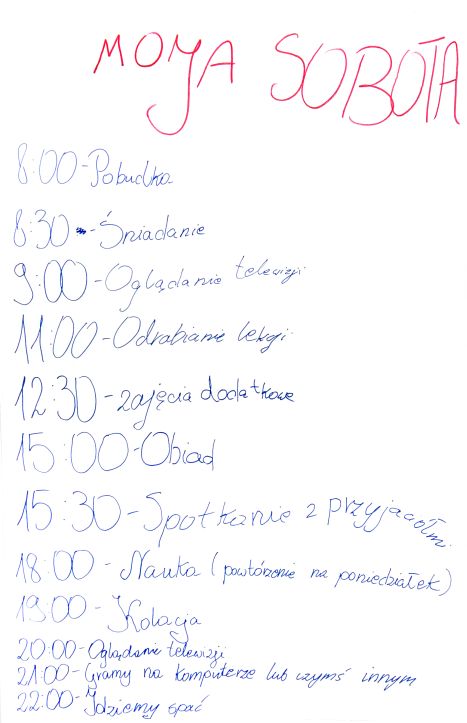 MOJA SOBOTA
8:00-Pobudka
8:30-Śniadanie
9:00-Oglądanie telewizji
11:00-Odrabianie lekcji
12:30-zajęcia dodatkowe
15:00-Obiad
15:30-Spotkanie z przyjaciółmi
18:00-Nauka (powtórzenie na poniedziałek)
19:00-Kolacja
20:00-Oglądanie telewizji
21:00-Gramy na komputerze lub czymś innym
22:00-Idziemy spać